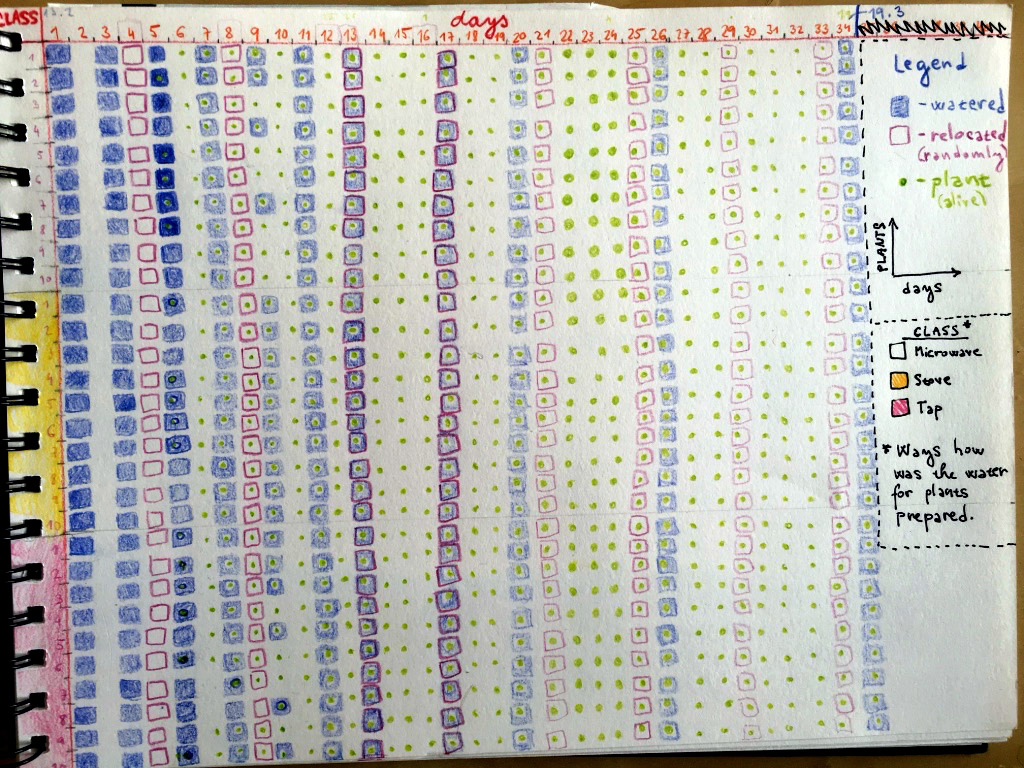 CLASS
days
19.3
1 2 3 4 5 6 7 8 9 10 11 12 13 14 15 16 17 18 19 20 21 22 23 24 25 26 27 28 29 30 31 32 33 34
1
2
3
4
5
6
7
8
9
10
Legend
- watered
- relocated
(randomly)
- plant
(alive)
PLANTS
days
CLASS*
Microwave
Stove
Tap
* Ways how
was the water
for plants
prepared.